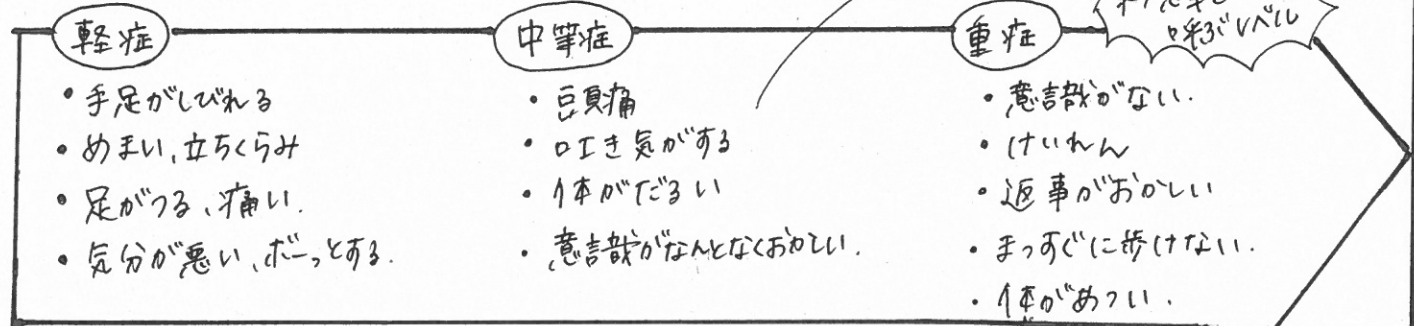 軽症
・手足がしびれる
・めまい、立ちくらみ
・足がつる、痛い.
・気分が悪い、ボーっとする.
中等症
・頭痛
・吐き気がする
・体がだるい
・意識がなんとなくおかしい.
重症
呼ぶレベル
・意識がない.
・けいれん
・返事がおかしい
・まっすぐに歩けない.
・体があつい.